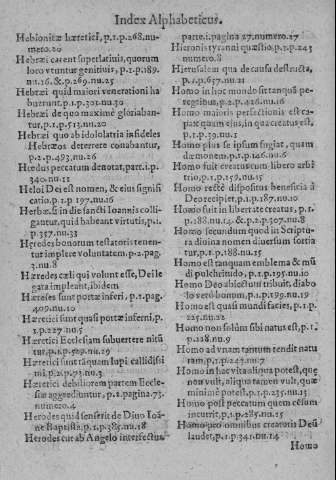 Index Alphabeticus.
Hebionitæ hæretici, p.1.p.268.nu-
mero.20
Hebræi carent superlatiuis, quorum
loco vtuntur genitiuis, p.1.p.189.
nu.16. & p.269.nu.25
Hebræi quid maiori venerationi ha
buerunt.p.1.p.301.nu.30
Hebræi de quo maximè gloriaban-
tur, p.1.p.513.nu.20
Hebræi quo ab idololatria infideles
Hebræos deterrere conabantur,
p.2.p.483.nu.26
Hœdus peccatum denotat, part.1.p.
340.nu.11
Heloi Dei est nomen, & eius signifi
catio.p.1.p 197.nu.16
Herbæ, si in die sancti Ioannis colli-
gantur, qui d habeant virtutis, p.1.
p.357.nu.33
Heredes bonorum testatoris tenen-
tur implere voluntatem.p.2.pag.
3.nu.8
Hæredes cæli qui volunt esse, Dei le
gata impleant, ibidem
Hæreses sunt portæ inferi, p.1.pag.
409.nu.10
Hæretici sunt quasi portæ inferni, p.
1.p.227.nu.5
Hæretici Ecclesiam subuertere nitū
tur, p.1.p.529.nu.19
Hæretici sunt tãquam lupi callidissi
mi, p.2.p.73.nu.3
Hæretici debiliorem partem Eccle-
siæ aggrediuntur, p.2.pagina.73.
numero.4
Herodes quid senserit de Diuo Ioã-
ne Baptista.p.1.p.385.nu.18
Herodes cur ab Angelo interfectus.
parte.1.pagina 27.numero.27
Hieronis tyranni quæstio.p.1.p.243
numero.8
Hierusalem qua de causa destructa,
p.1.p.657.nu.21
Homo in hoc mundo sit tanquã pe-
regrinus, p.2.p.426.nu.16
Homo maioris perfectionis est ca-
pax quam eius, in qua creatus est,
p.1.p.39.nu.1
Homo plus se ipsum fugiat, quam
dæmonem.p.1.p.146.nu.6
Homo fuit creatus cum libero arbi
trio, p.1.p.159.nu.15
Homo rectè dispositus beneficia à
Deo recipiet.p.1.p.187.nu.10
Homo fuit in libertate creatus, p.1.
p.188.nu.14.& p.2.p.307.nu.8
Homo secundum quod in Scriptu-
ra diuina nomen diuersum sortia
tur, p.1.p.188.nu.15
Homo est tanquam emblema & mū
di pulchritudo, p.1.p.195.nu.10
Homo Deo abiectus tribuit, diabo
lo verò bonum, p.1.p.199.nu.19
Homo est quasi mundi facies, p.1.p.
225.nu.22
Homo non solùm sibi natus est, p.1.
p.228.nu.9
Homo ad vnam tantum tendit natu
ram, p.1.p.242.nu.7
Homo in hac vita aliqua potest, quę
non vult, aliqua tamen vult, quæ
minimè potest, p.1.p.235.nu.13
Homo post peccatum quem césum
incurrit, p.1.p.285.nu.15
Homo pro omnibus creatoris Dei
laudet, p.1.p.341.nu.14
Homo